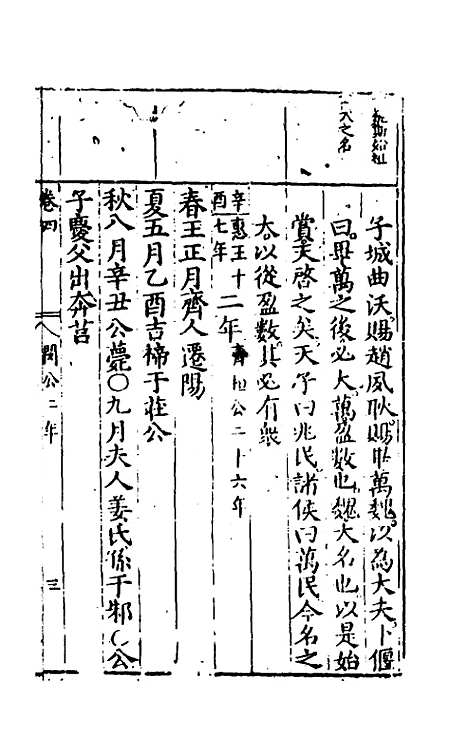 子城曲沃賜趙夙耿賜畢萬魏以為大夫卜偃
曰畢萬之後必大萬盈數也魏大名也以是始
賞天啓之矣天子曰兆民諸侯曰萬民今名之
大以從盈數其必有衆
辛酉惠王十七年二年齊桓公二十六年
春王正月齊人遷陽
夏五月乙酉吉禘于莊公
秋八月辛丑公薨○九月夫人姜氏孫于邾○公
子慶父出奔莒
卷四 閔公二年 三
之名